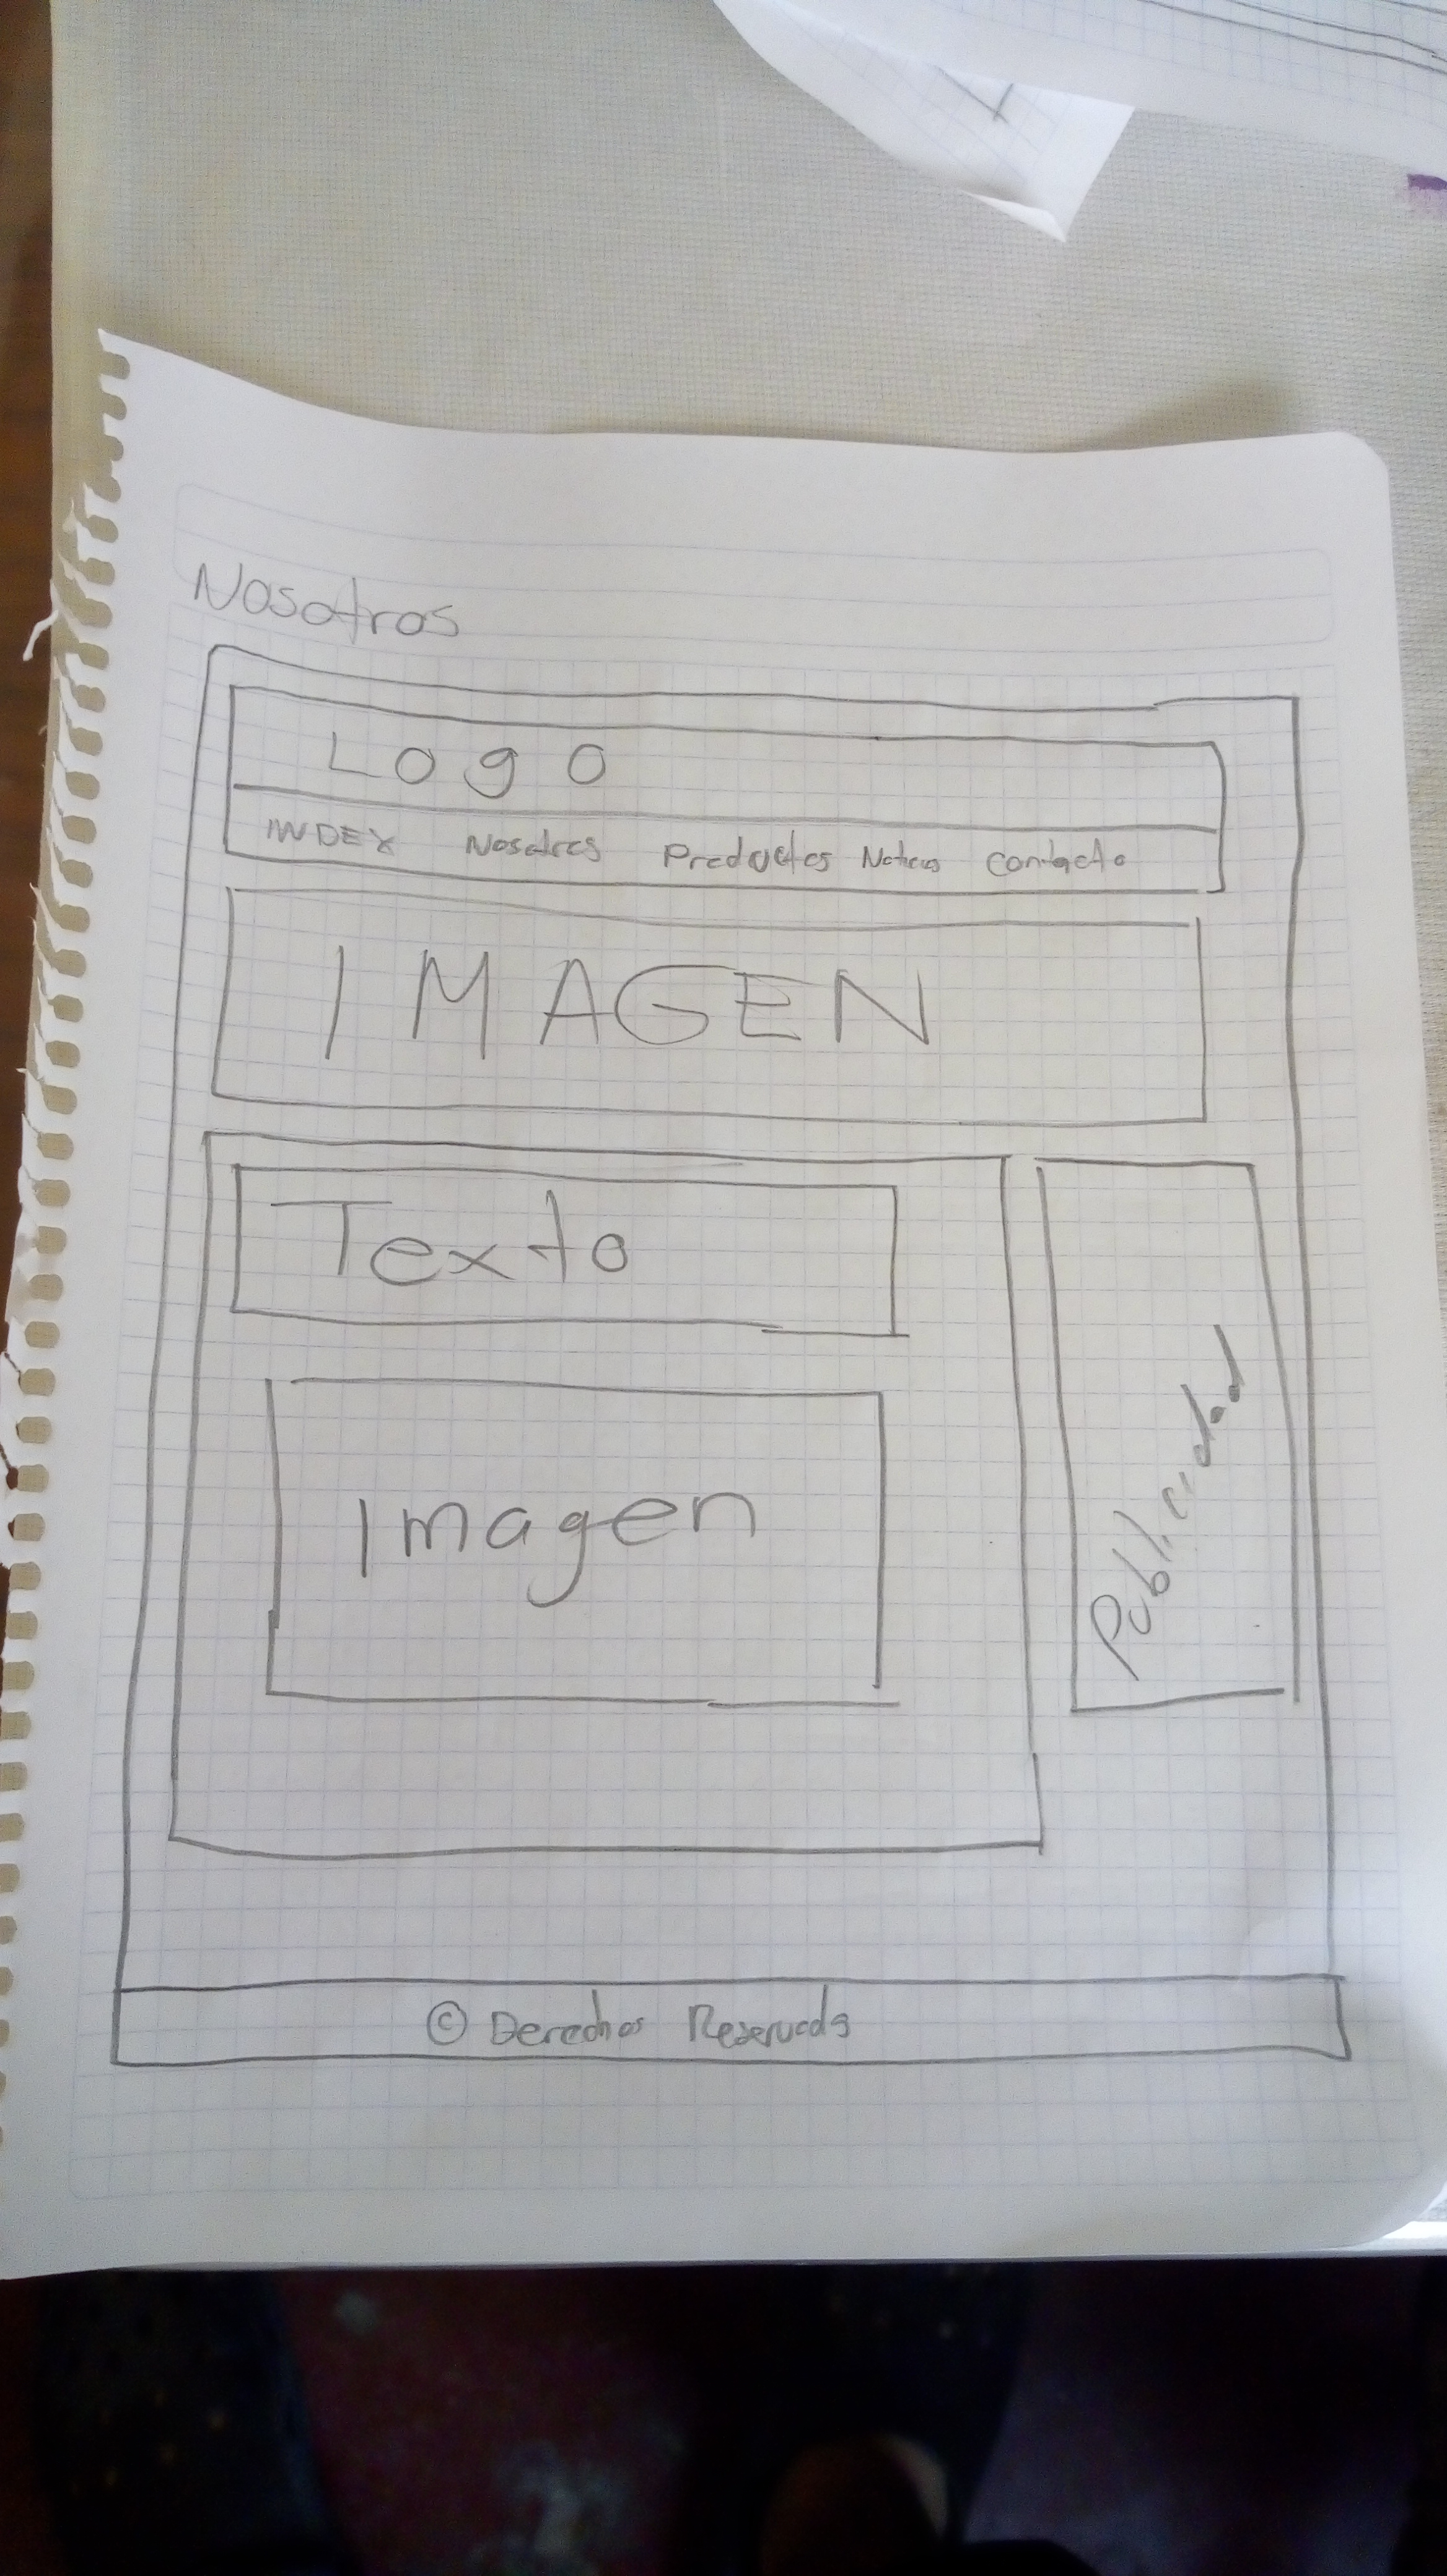 Nosotros
Logo
INDEX Nosotros Productos Noticias Contacto
IMAGEN
Texto
Imagen
Publicidad
© Derechos Reservads